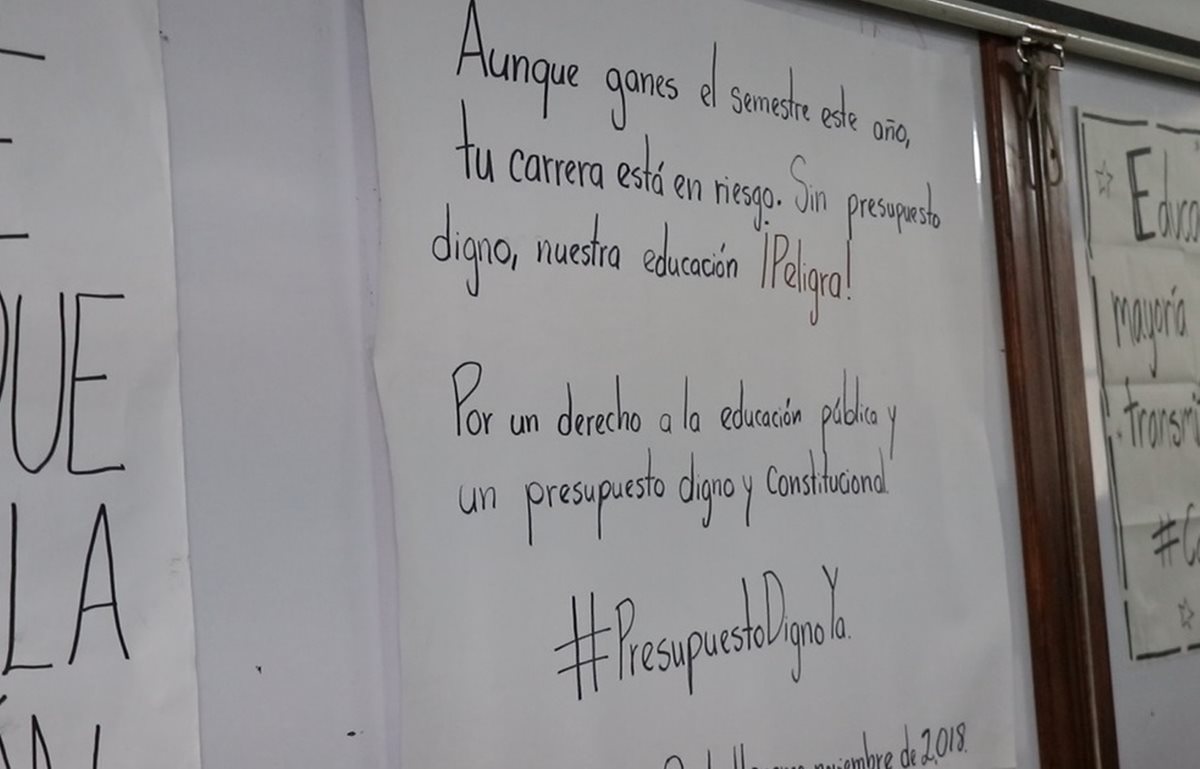 QUE
LA
Aunque ganes el semestre este año,
tu carrera está en riesgo. Sin presupuesto
digno, nuestra educación ¡Peligra!
Por un derecho a la educación pública y
un presupuesto digno y Constitucional.
#PresupuestoDignoYa.
noviembre de 2,018.
Educa
mayoría
transmi
#C